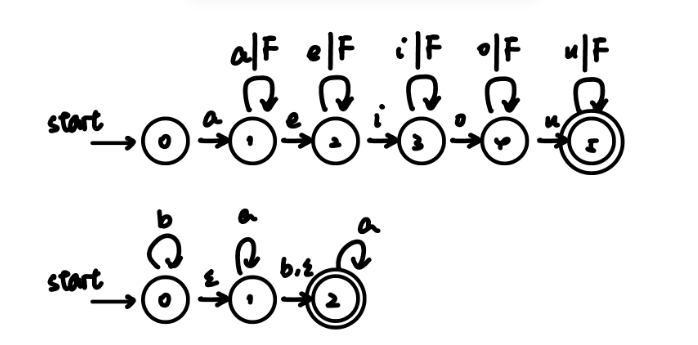 a|F e|F i|F o|F u|F
start 0 a 1 e 2 i 3 o 4 u 5
b a a
start 0 ε 1 b,ε 2